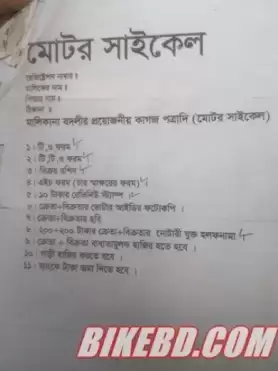 মোটর সাইকেল
রেজিষ্ট্রেশন নাম্বার ঃ
মালিকের নাম ঃ
পিতার নাম ঃ
ঠিকানা ঃ
মালিকানা বদলীর প্রয়োজনীয় কাগজ পত্রাদি (মোটর সাইকেল)
১। টি,ও ফরম
২। টি,টি,ও ফরম
৩। বিক্রয় রশিদ
৪। এইচ ফরম (চার স্বাক্ষরের ফরম)
৫। ১০ টাকার রেভিনিউ স্ট্যাম্প
৬। ক্রেতা+বিক্রতার ভোটার আইডির ফটোকপি ।
৭। ক্রেতা+বিক্রতার ছবি
৮। ২০০+২০০ টাকার ক্রেতা+বিক্রতার নোটারী যুক্ত হলফনামা
৯। ক্রেতা + বিক্রতা বাধ্যতামূলক হাজির হতে হবে ।
১০। গাড়ী হাজির করতে হবে ।
১১। ব্যাংকে টাকা জমা দিতে হবে ।
BIKEBD.COM